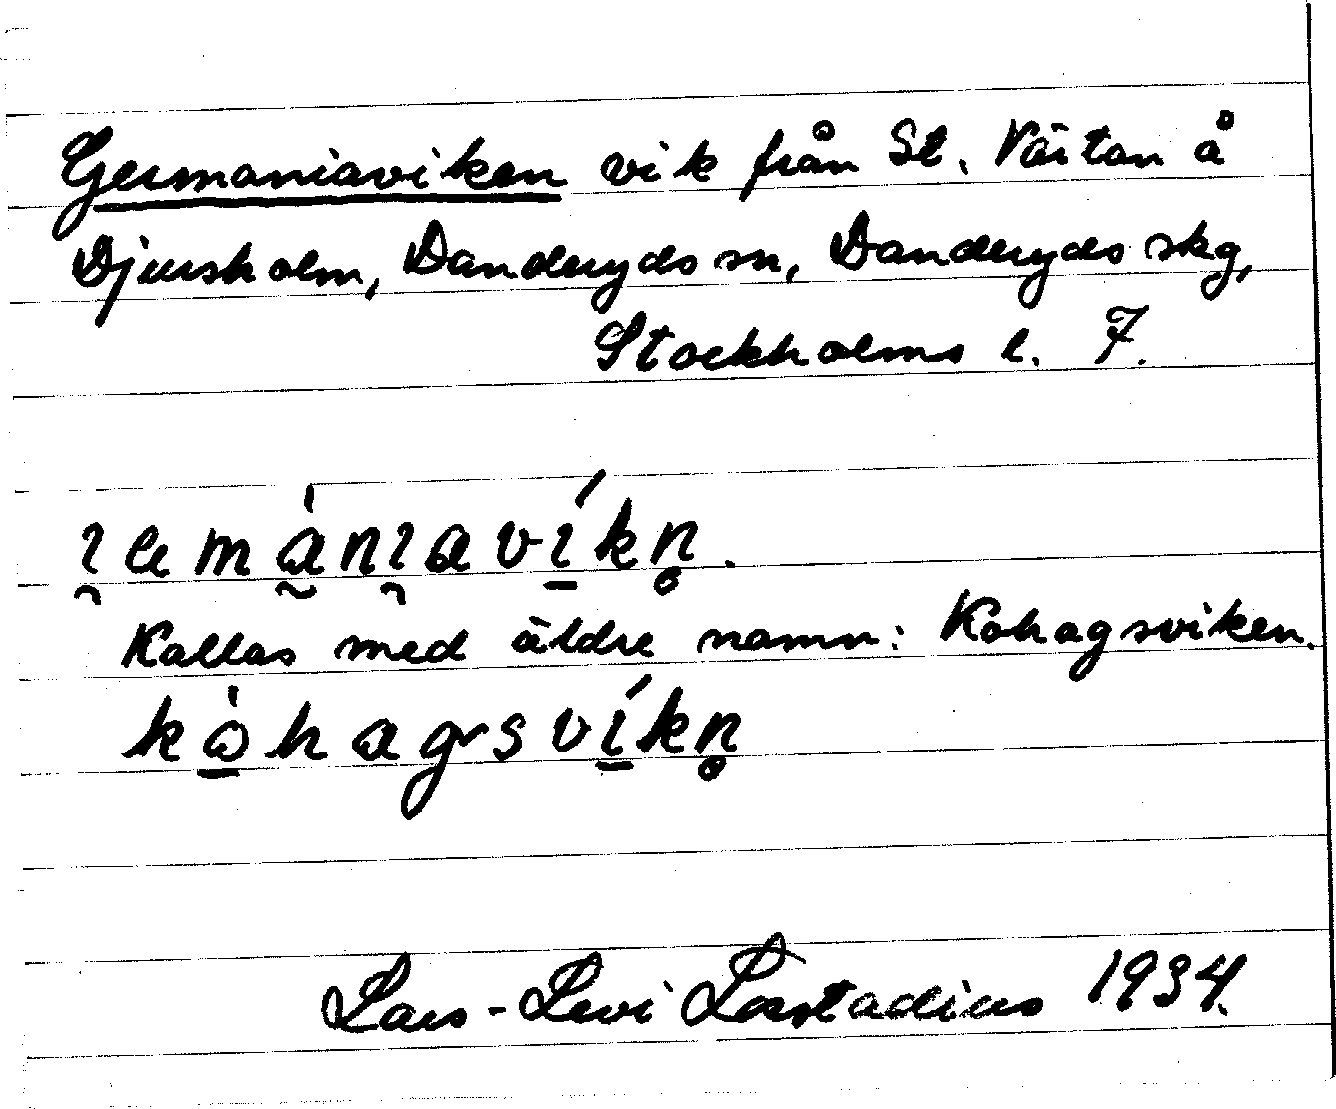 Germaniaviken vik från St. Värtan å
Djursholm, Danderyds sn, Danderyds skg,
Stockholms l. 7.
Kallas med äldre namn: Kohagsviken.
kò̱hagsví̱kn̥
Lars-Levi Læstadius 1934.